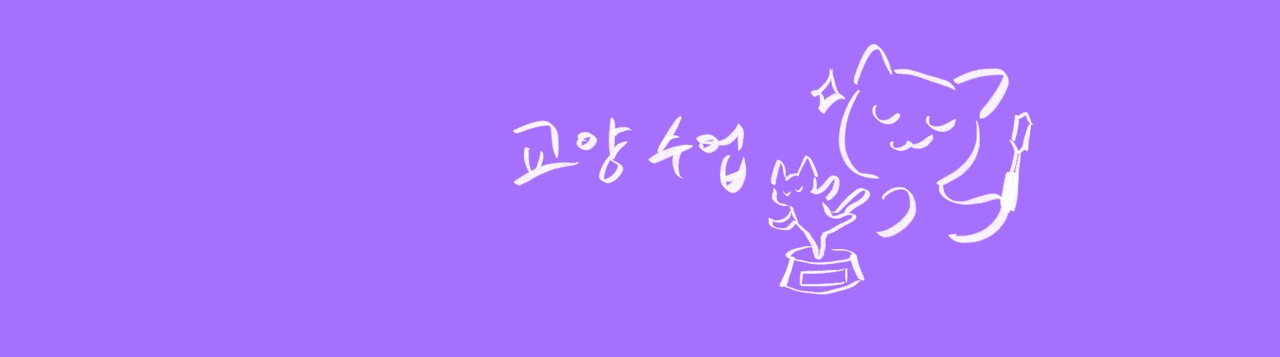 교양 수업